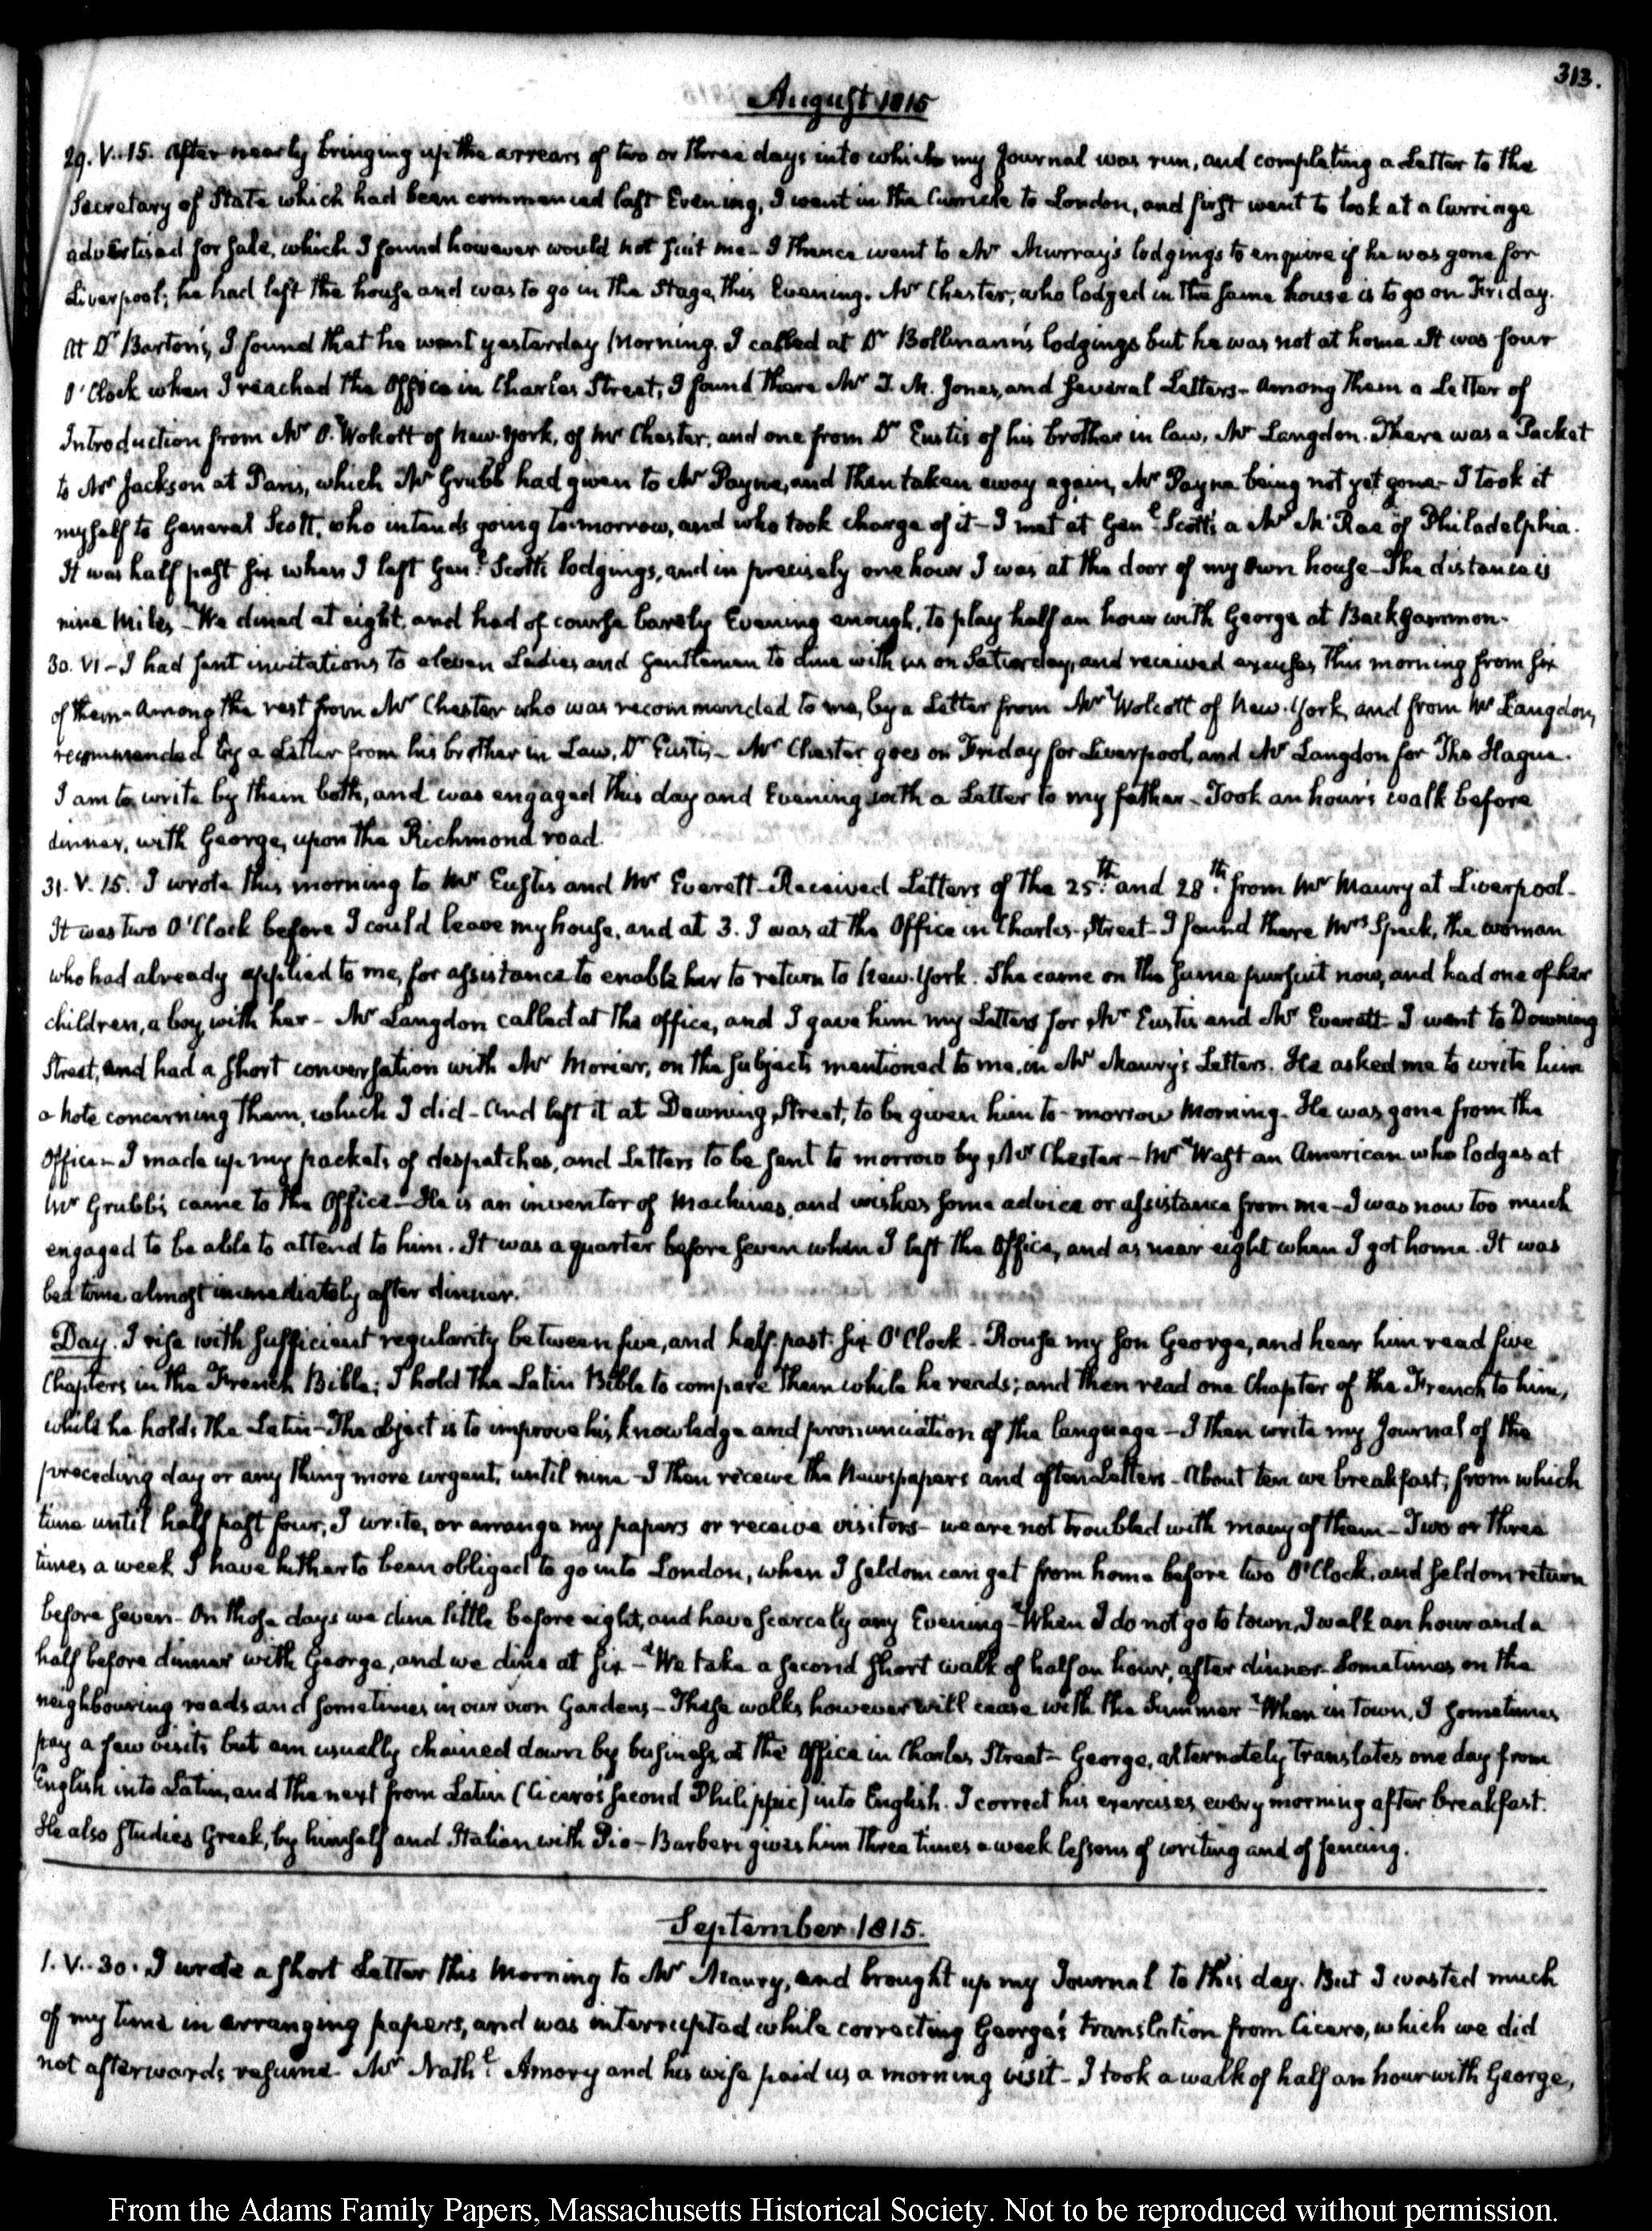 313.
August 1815
29. V..15. After nearly bringing up the arrears of two or three days into which my Journal was run, and completing a Letter to the
Secretary of State which had been commenced last Evening, I went in the Curricle to London, and first went to look at a Carriage
advertised for sale, which I found however would not suit me— I thence went to Mr Murray's lodgings to enquire if he was gone for
Liverpool; he had left the house and was to go in the Stage, this Evening. Mr Chester, who lodged in the same house is to go on Friday.
At Dr Barton's, I found that he went yesterday Morning. I called at Dr Bollmann's lodgings but he was not at home It was four
O'Clock when I reached the Office in Charles Street; I found there Mr T. M. Jones, and several Letters— Among them a Letter of
Introduction from Mr O. Wolcott of New-York, of Mr Chester, and one from Dr Eustis of his brother in law, Mr Langdon. There was a Packet
to Mr Jackson at Paris, which Mr Grubb had given to Mr Payne, and then taken away again, Mr Payne being not yet gone— I took it
myself to General Scott, who intends going to-morrow, and who took charge of it— I met at Genl. Scott's a Mr McRae of Philadelphia.
It was half past six when I left Genl. Scott's lodgings, and in precisely one hour I was at the door of my own house— The distance is
nine Miles— We dined at eight, and had of course barely Evening enough, to play half an hour with George at Backgammon.
30. VI— I had sent invitations to eleven Ladies and Gentlemen to dine with us on Saturday, and received excuses this morning from six
of them— Among the rest from Mr Chester who was recommended to me, by a Letter from Mr Wolcott of New-York, and from Mr Langdon,
recommended by a Letter from his brother in Law, Dr Eustis— Mr Chester goes on Friday for Liverpool, and Mr Langdon for The Hague.
I am to write by them both, and was engaged this day and Evening with a Letter to my father— Took an hour's walk before
dinner, with George, upon the Richmond road.
31. V. 15. I wrote this morning to Mr Eustis and Mr Everett— Received Letters of the 25th. and 28th. from Mr Maury at Liverpool—
It was two O'Clock before I could leave my house, and at 3. I was at the Office in Charles-Street— I found there Mrs Speck, the woman
who had already applied to me, for assistance to enable her to return to New-York. She came on the same pursuit now, and had one of her
children, a boy, with her— Mr Langdon called at the office, and I gave him my Letters for Mr Eustis and Mr Everett— I went to Downing
Street, and had a short conversation with Mr Morier, on the subjects mentioned to me, in Mr Maury's Letters. He asked me to write him
a Note concerning them, which I did— And left it at Downing Street, to be given him to-morrow Morning— He was gone from the
Office— I made up my packets of despatches, and Letters to be sent to morrow by Mr Chester— Mr West an American who lodges at
Mr Grubb's came to the Office— He is an inventor of Machines, and wishes some advice or assistance from me— I was now too much
engaged to be able to attend to him. It was a quarter before seven when I left the Office, and as near eight when I got home. It was
bed time almost immediately after dinner.
Day. I rise with sufficient regularity between five, and half past six O'Clock— Rouse my son George, and hear him read five
Chapters in the French Bible; I hold the Latin Bible to compare them while he reads; and then read one Chapter of the French to him,
while he holds the Latin— The object is to improve his knowledge and pronunciation of the language— I then write my Journal of the
preceding day or any thing more urgent, until nine— I then receive the Newspapers and often Letters— About ten we breakfast; from which
time until half past four, I write, or arrange my papers or receive visitors— we are not troubled with many of them— Two or three
times a week I have hitherto been obliged to go into London, when I seldom can get from home before two O'Clock, and seldom return
before seven— On those days we dine little before eight, and have scarcely any Evening— When I do not go to town, I walk an hour and a
half before dinner with George, and we dine at six— We take a second short walk of half an hour, after dinner— Sometimes on the
neighbouring roads and sometimes in our own Gardens— These walks however will cease with the Summer— When in town, I sometimes
pay a few visits but am usually chained down by business, at the Office in Charles Street— George, alternately translates one day from
English into Latin, and the next from Latin (Cicero's second Philippic) into English. I correct his exercises, every morning after breakfast.
He also studies Greek, by himself and Italian with Pio— Barberi gives him three times a week lessons of writing and of fencing.
September 1815.
1. V..30. I wrote a short Letter this Morning to Mr Maury, and brought up my Journal to this day. But I wasted much
of my time in arranging papers, and was interrupted while correcting George's translation from Cicero, which we did
not afterwards resume— Mr Nathl. Amory and his wife paid us a morning visit— I took a walk of half an hour with George,
From the Adams Family Papers, Massachusetts Historical Society. Not to be reproduced without permission.